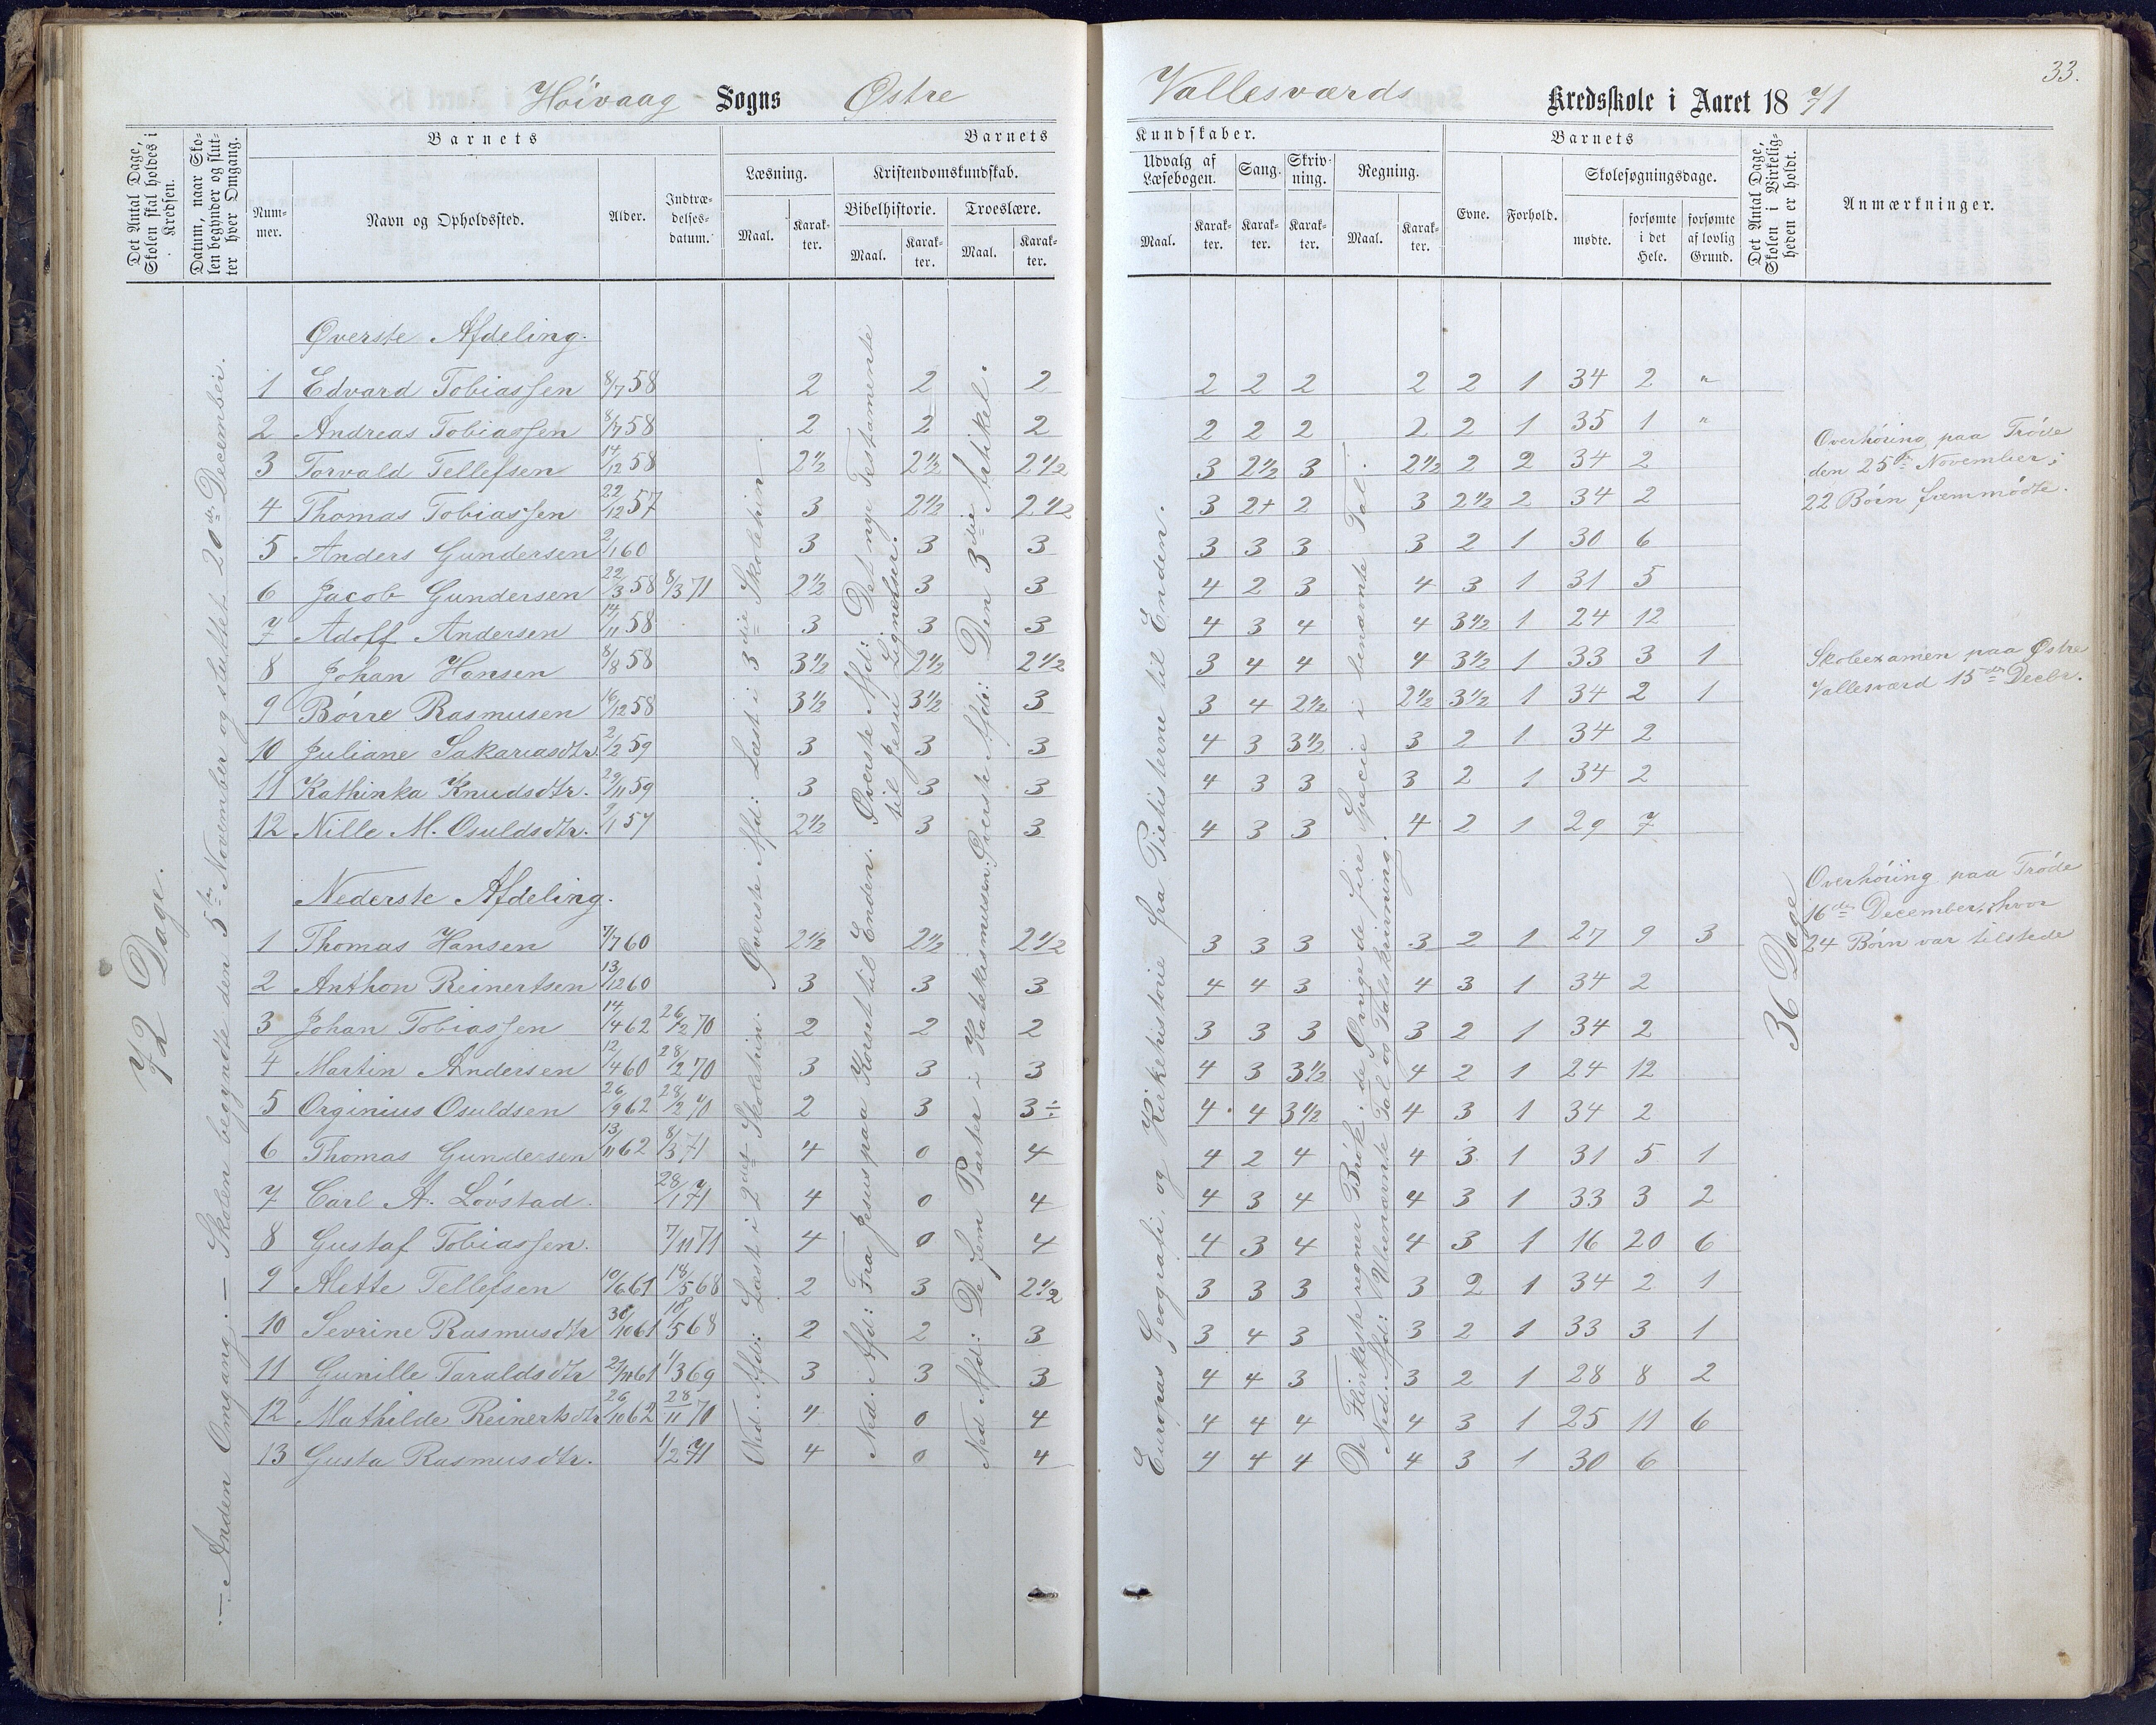 33.
Høivaag Sogns Østre Vallesværds Kredsskole i Aaret 1871
Det Antal Dage, Skolen skal holdes i Kredsen.
Datum, naar Skolen begynder og slutter hver Omgang.
Barnets
Nummer.
Navn og Opholdssted.
Alder.
Indtrædelsesdatum.
Barnets Kundskaber.
Læsning.
Maal. Karakter.
Kristendomskundskab.
Bibelhistorie. Troeslære.
Maal. Karakter. Maal. Karakter.
Udvalg af Læsebogen. Sang. Skrivning. Regning.
Maal. Karakter. Karakter. Karakter. Maal. Karakter.
Barnets
Evne. Forhold. Skolesøgningsdage.
mødte. forsømte i det Hele. forsømte af lovlig Grund.
Det Antal Dage, Skolen i Virkeligheden er holdt.
Anmærkninger.
72 Dage.
— Anden Omgang: — Skolen begyndte den 5te November og sluttet 20de December.
Øverste Afdeling.
1 Edvard Tobiassen 8/7 58 2 2 2 2 2 2 2 2 1 34 2 "
2 Andreas Tobiassen 8/7 58 2 2 2 2 2 2 2 2 1 35 1 "
3 Torvald Tellefsen 14/12 58 2 1/2 2 1/2 2 1/2 3 2 1/2 3 2 1/2 2 2 34 2
4 Thomas Tobiassen 22/12 57 3 2 1/2 2 1/2 3 2+ 2 3 2 1/2 2 34 2
5 Anders Gundersen 2/1 60 3 3 3 3 3 3 3 2 1 30 6
6 Jacob Gundersen 22/3 58 8/3 71 2 1/2 3 3 4 2 3 4 3 1 31 5
7 Adolf Andersen 14/11 58 3 3 3 4 3 4 4 3 1/2 1 24 12
8 Johan Hansen 8/8 58 3 1/2 2 1/2 2 1/2 3 4 4 4 3 1/2 1 33 3 1
9 Børre Rasmusen 16/12 58 3 1/2 3 1/2 3 3 4 2 1/2 2 1/2 3 1/2 1 34 2 1
10 Juliane Sakariasdtr. 2/2 59 3 3 3 4 3 3 1/2 3 2 1 34 2
11 Kathinka Knudsdtr. 29/11 59 3 3 3 4 3 3 3 2 1 34 2
12 Nille M. Osuldsdtr. 9/1 57 2 1/2 3 3 4 3 3 4 2 1 29 7
Nederste Afdeling.
1 Thomas Hansen 7/7 60 2 1/2 2 1/2 2 1/2 3 3 3 3 2 1 27 9 3
2 Anthon Reinertsen 13/12 60 3 3 3 4 4 3 4 3 1 34 2
3 Johan Tobiassen 14/4 62 26/2 70 2 2 2 3 3 3 3 2 1 34 2
4 Martin Andersen 12/4 60 28/2 70 3 3 3 4 3 3 1/2 4 2 1 24 12
5 Orginius Osuldsen 26/9 62 28/2 70 2 3 3÷ 4 4 3 1/2 4 3 1 34 2
6 Thomas Gundersen 13/11 62 8/3 71 4 0 4 4 2 4 4 3 1 31 5 1
7 Carl A. Løvstad. 28/1 71 4 0 4 4 3 4 4 3 1 33 3 2
8 Gustaf Tobiassen. 7/11 71 4 0 4 4 3 4 4 3 1 16 20 6
9 Mette Tellefsen 10/6 61 18/5 68 2 3 2 1/2 3 3 3 3 2 1 34 2 1
10 Sevrine Rasmusdtr 30/10 61 18/5 68 2 2 3 3 4 3 3 2 1 33 3 1
11 Gunille Taraldsdtr 21/11 61 1/3 69 3 3 3 4 4 3 3 2 1 28 8 2
12 Mathilde Reinertsdtr 26/10 62 28/11 70 4 0 4 4 4 4 4 3 1 25 11 6
13 Gusta Rasmusdtr. 1/2 71 4 0 4 4 4 4 4 3 1 30 6
Øverste Afd: Læst i 3die Skoletrin.
Ned. Afd: Læst i 2det Skoletrin.
Øverste Afd: Det nye Testamente til Jesu Lignelser.
Ned. Afd: Fra Jesus paa Korset til Enden.
Øverste Afd: Den 3die Artikel.
Ned. Afd: De fem Parter i Katekismussen.
Europas Geografi, og Kirkehistorie fra Pietisterne til Enden.
De Flinkeste regner Brøk; de Øvrige de fire Specie i benævnte Tal.
Ned. Afd: Ubenævnte Tal og Talskrivning.
36 Dage
Overhøring paa Trøde
den 25de November;
22 Børn fremmødte.
Skoleexamen paa Østre
Vallesværd 15de Decbr.
Overhøiing paa Trøde
16de December, hvor
24 Børn var tilstede